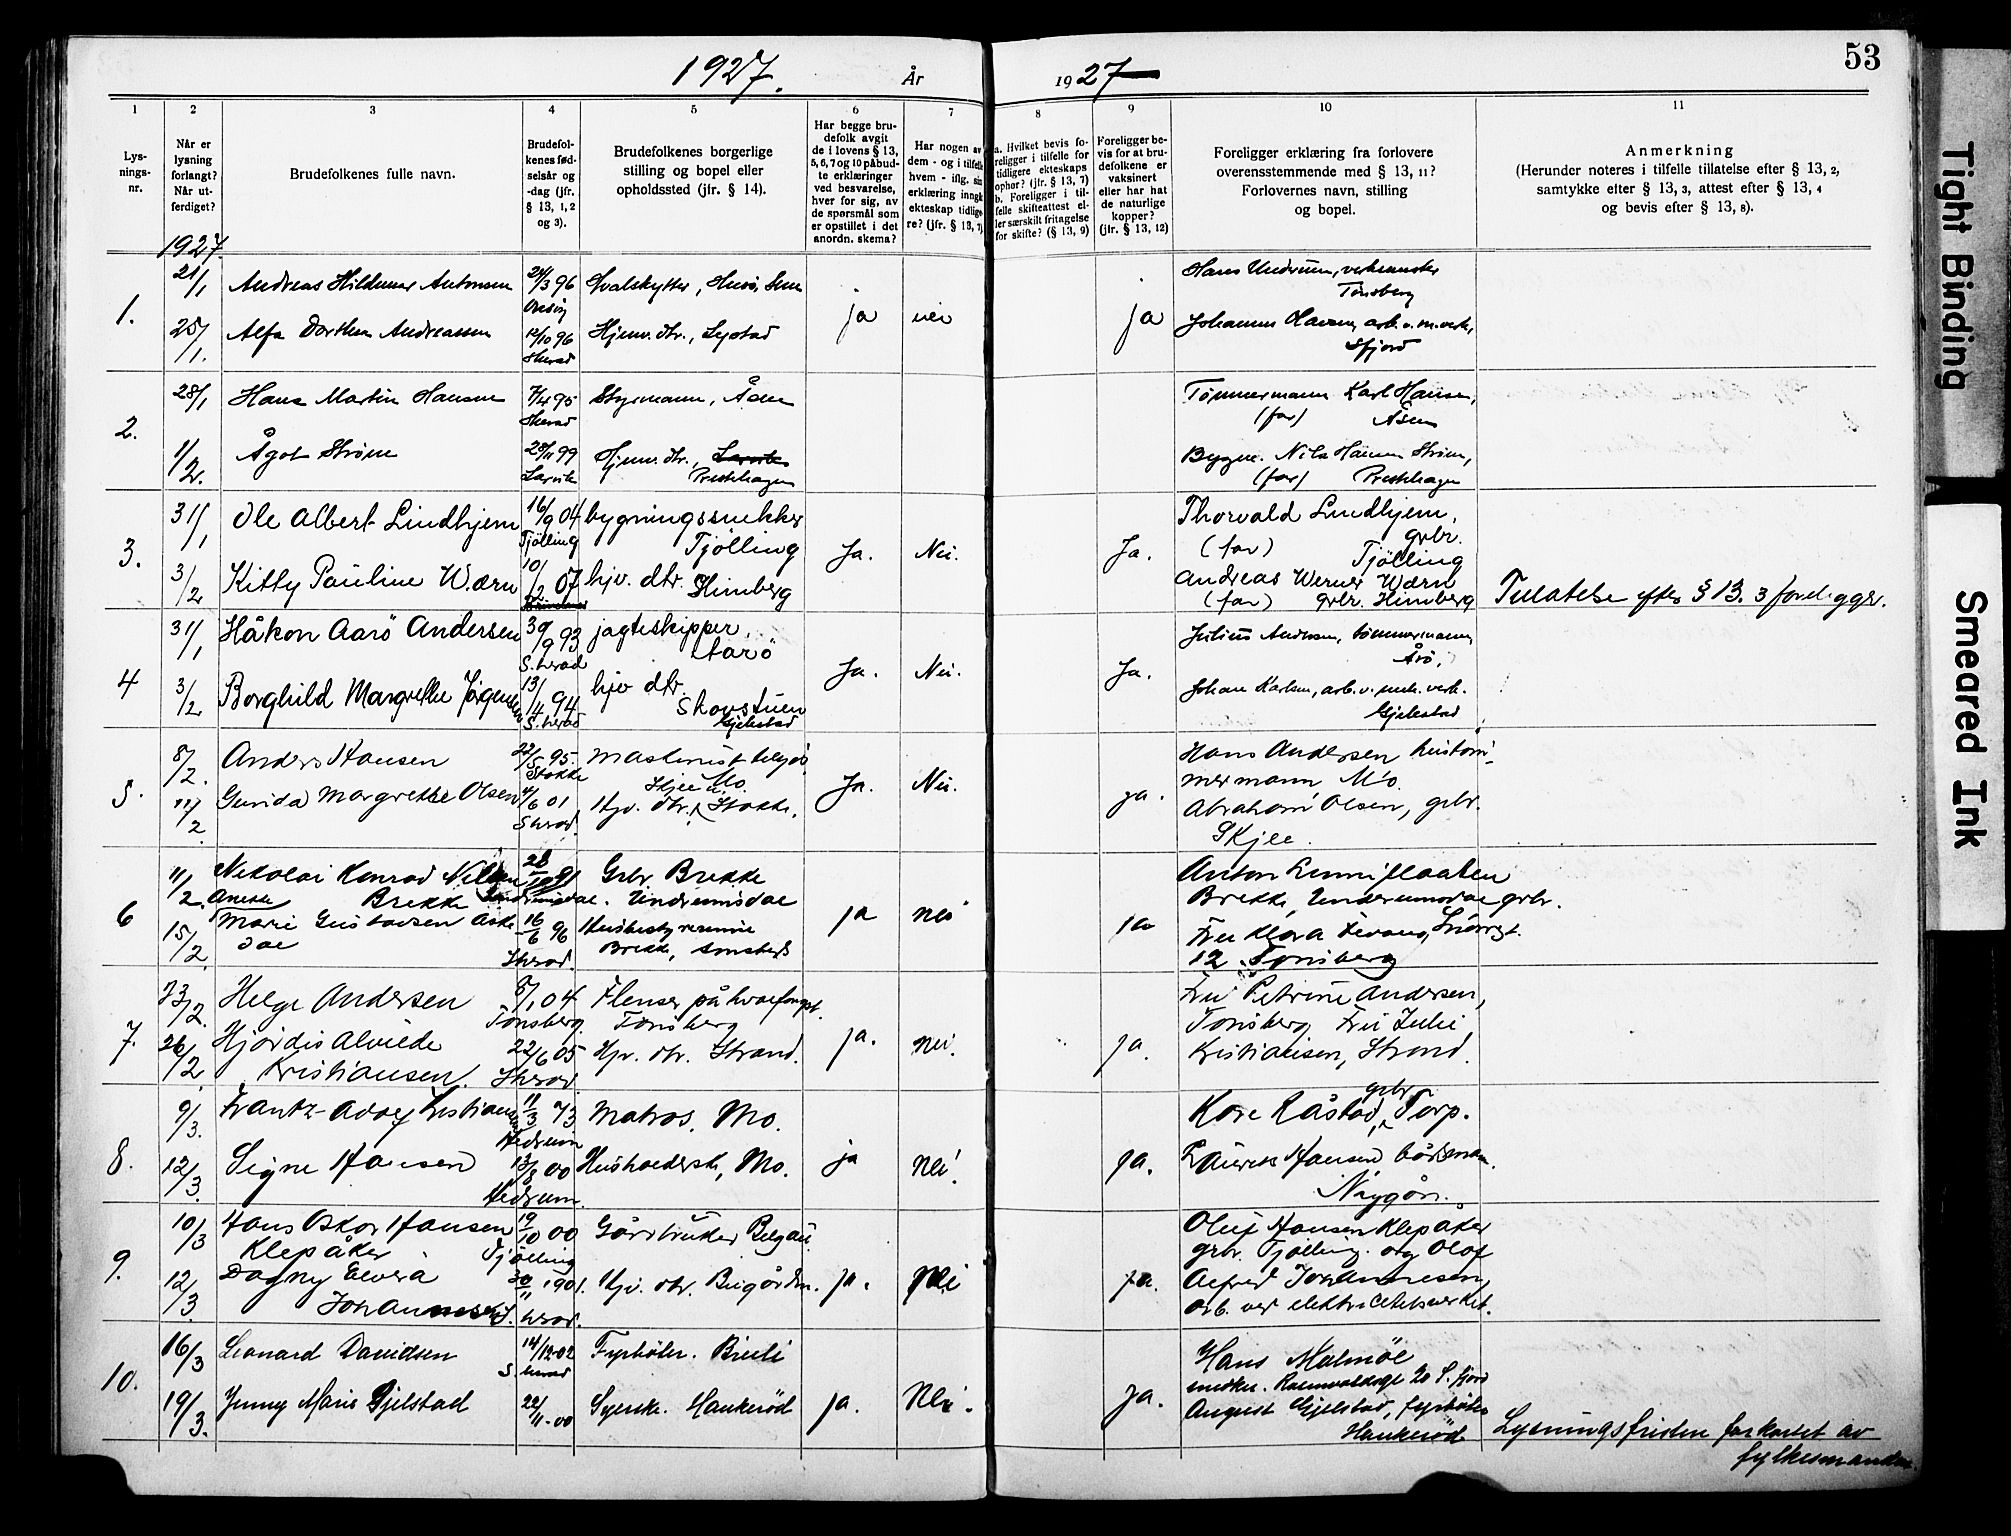 1927.
År
1927
53
1
2
3
4
5
6
7
8
9
10
11
Lys-
nings-
nr.
Når er
lysning
forlangt?
Når ut-
ferdiget?
Brudefolkenes fulle navn.
Brudefol-
kenes fød-
selsår og
-dag (jfr.
§ 13, 1,2
og 3).
Brudefolkenes borgerlige
stilling og bopel eller
opholdssted (jfr. § 14).
Har begge bru-
defolk avgit
de i lovens § 13,
5, 6, 7 og 10 påbud-
te erklæringer
ved besvarelse,
hver for sig, av
de spørsmål som
er opstillet i det
anordn. skema?
Har nogen av
dem - og i tilfelle
hvem - iflg. sin
erklæring inngå
ekteskap tidlige
re? (jfr. § 13, 7)
a. Hvilket bevis fo-
religger i tilfelle for
tidligere ekteskaps
ophør? (jfr. § 13, 7)
b. Foreligger i til-
felle skifteattest el-
ler særskilt fritagelse
for skifte? (§ 13, 9)
Foreligger be-
vis for at bru-
defolkene er
vaksinert
eller har hat
de naturlige
kopper?
(jfr. § 13, 12)
Foreligger erklæring fra forlovere
overensstemmende med § 13, 11?
Forlovernes navn, stilling
og bopel.
Anmerkning
(Herunder noteres i tilfelle tillatelse efter § 13, 2,
samtykke efter § 13, 3, attest efter § 13, 4
og bevis efter § 13, 8).
1927
1.
21/1
Andreas Hildemar Antonsen
24/3 96
Hvalskytter,
25/1.
Alfa Dorthea Andreassen
12/10 96
Skerad
Hjemv. dtr., Lystad
ja
nei
ja
Hans Undrum,
Tønsberg
Johannes arb. v. m. verk,
Sfjord
2.
28/1
Hans Martin Hansen
7/4 95
Skerad
Styrmann, Åsen
1/2.
Ågot Strøm
28/11 99
Larvik
Hjemv. dtr., Larvik
Prestehagen
Tømmermann Karl Hansen,
(far) Åsen
Bygm. Nils Hansen Strøm,
(far) Prestehagen
3.
31/1
Ole Albert Lindhjem
16/9 04
Tjølling
bygningssnekker
Tjølling
3/2
Kitty Pauline Wærn
10/2 07
hjv. dtr. Himberg
Ja.
Nei.
Ja.
Thorvald Lindhjem,
(far) grbr.
Tjølling
Andreas Werner Wærn
(far) grbr. Himberg
Tillatelse efter § 13. 3 foreligger.
4
31/1
Håkon Aarö Andersen
30/9 93
S. herad
jagteskipper,
Aarö
3/2
Borghild Margrethe Jörgensen
13/4 94
S. herad
hjv dtr.
Skovstuen
Gjekstad
Ja.
Nei.
Ja.
Julius Andersen, tømmermann,
Årö,
Johan Karlsen, arb. v. mek. verk.
Gjekstad
5.
8/2.
Anders Hansen
22/5 95.
Stokke
Maskinist
Mo.
11/2
Gunda Margrethe Olsen
4/6 01
S herad.
Skjee
Hjv. dtr., Stokke.
Ja.
Nei.
ja.
Hans Andersen
mermann Mo.
Abraham Olsen, grbr.
Skjee.
6
11/2
Nikolai Konrad Nilsen
Brekke
28/10 91
Undrumsdal.
Grbr Brekke
Undrumsdal
15/2.
Anette
Marie Gustavsen Aske-
dal
16/6 96
Sherad.
Husbestyrerinne
Brekke, Ramsdal
ja
nei
ja
Anton
Brekke, Undrumsdal grbr.
Fru Klara
12 Tønsberg
7.
23/2.
Helge Andersen
8/1 04
Tønsberg.
Flenser på hvalfangst.
Tønsberg
26/2
Hjördis Alvilde
Kristiansen.
22/6 05
Sherad
Hjv. dtr. Strand.
ja.
nei.
ja.
Fru Petrine Andersen,
Tønsberg, Fru Julie
Kristiansen, Strand.
8.
9/3.
Frantz Adolf Kristiansen
11/3 73
Hedrum
Matros. Mo.
12/3.
Signe Hansen
13/8 00
Hedrum.
Husholderske, Mo.
ja
nei.
ja.
Kåre Råstad, grbr. Torp.
Laurits Hansen,
Nygår.
9.
10/3
Hans Oskar Hansen
Klepåker
19/10 00
Tjölling
Gårdbruker
12/3
Dagny Elvira
Johannesen
30/11 1901.
S. herad.
Hjv. dtr. Bugården.
ja.
nei
ja.
Oluf Hansen Klepåker
grbr. Tjölling. og Olof
Alfred Johannesen,
arb. ved elektricitetsverket.
10.
16/3
Leonard Davidsen
14/12-02
S. herad
Fyrböter. Breili
19/3.
Jenny Marie Gjelstad
22/11-00
Syerske. Haukeröd
ja.
Nei.
ja.
Hans Malmöe
snekker. 20 S. fjord
August Gjelstad, fyrböter
Haukeröd
Lysningsfristen forkortet av
fylkesmannen.
Tight Binding
Smeared Ink